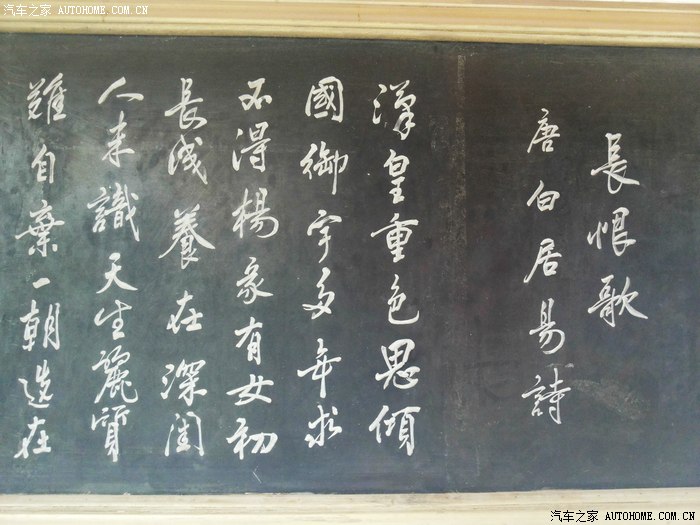 汽车之家 AUTOHOME.COM.CN
長恨歌
唐白居易詩
漢皇重色思傾
國御宇多年求
不得楊家有女初
長成養在深閨
人未識天生麗質
難自棄一朝選在
汽车之家 AUTOHOME.COM.CN